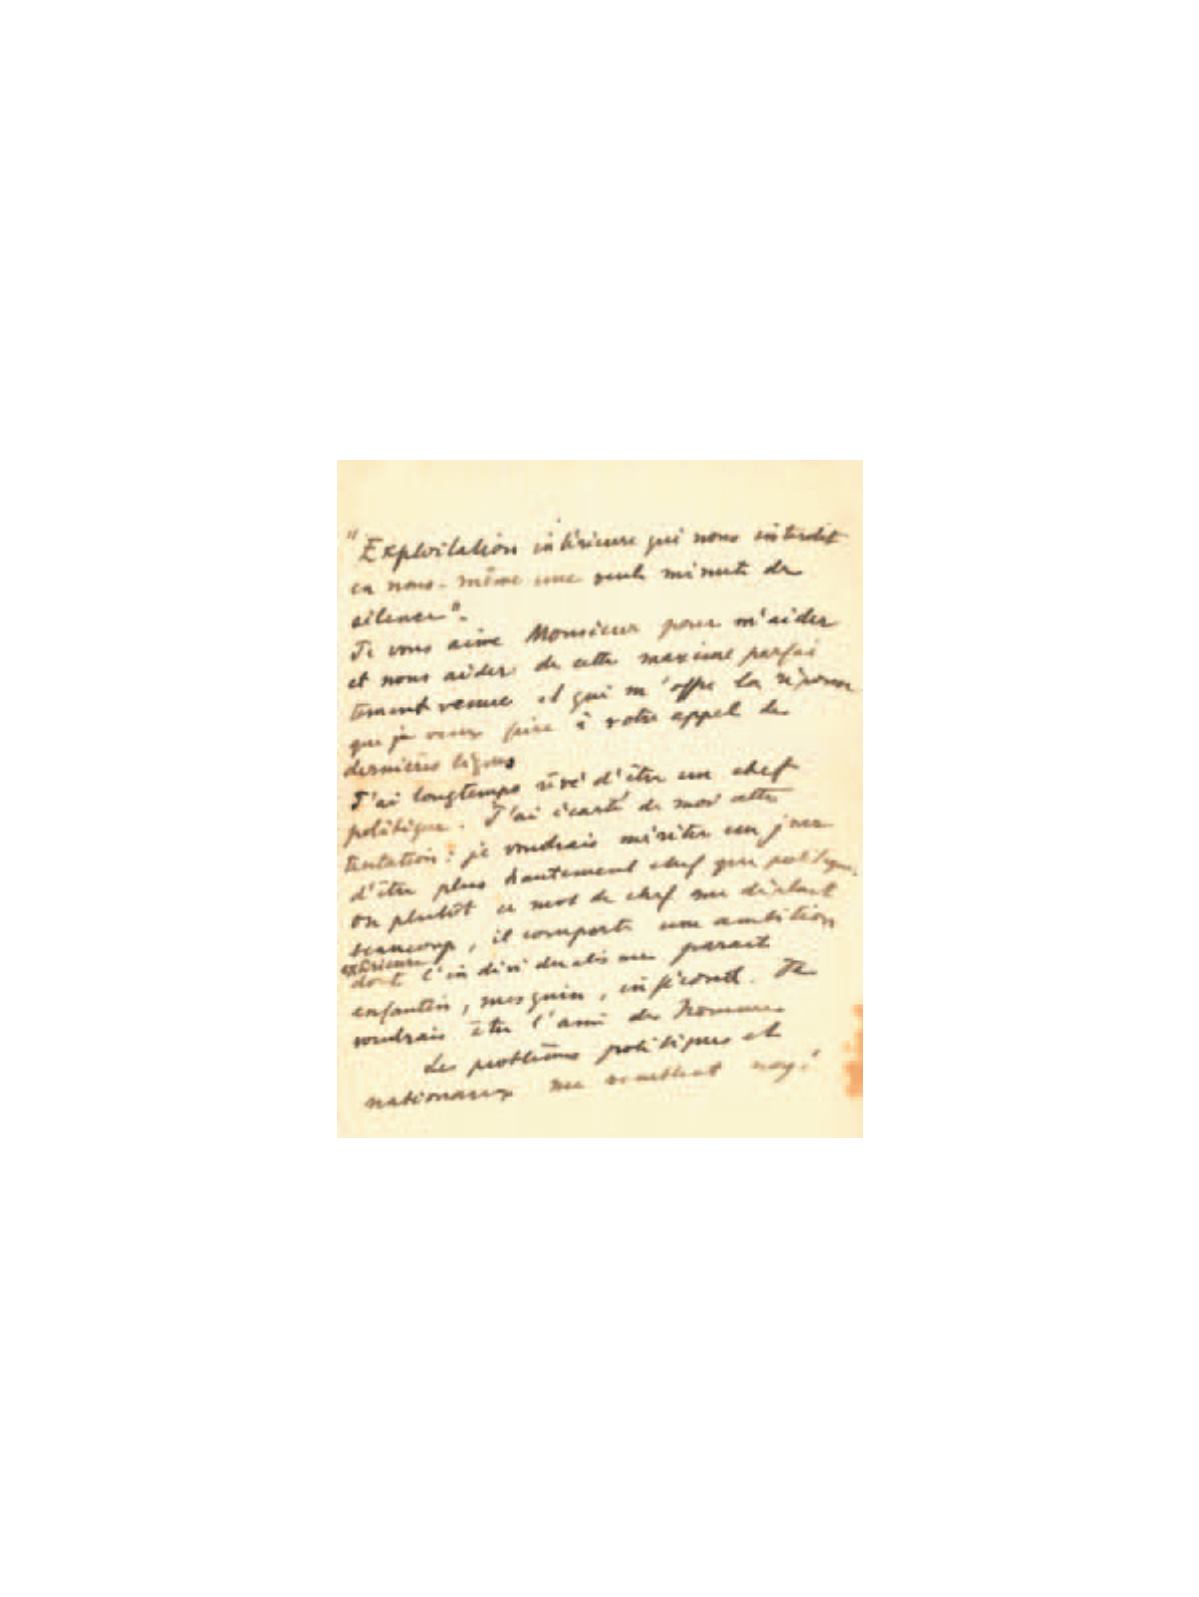 "Exploitation intérieure qui nous interdit
en nous-même une seule minute de
silence".
Je vous aime Monsieur pour m'aider
et nous aider de cette maxime parfai
tement venue et qui m'offre la réponse
que je veux faire à votre appel de
dernières lignes
J'ai longtemps rêvé d'être un chef
politique. J'ai écarté de moi cette
tentation : je voudrais mériter un jour
d'être plus hautement chef que politique,
ou plutôt ce mot de chef me déplait
beaucoup, il comporte une ambition
extérieure
dont l'individualisme me parait
enfantin, mesquin, infécond. Je
voudrais être l'ami des hommes
Les problèmes politiques et
nationaux me semblent